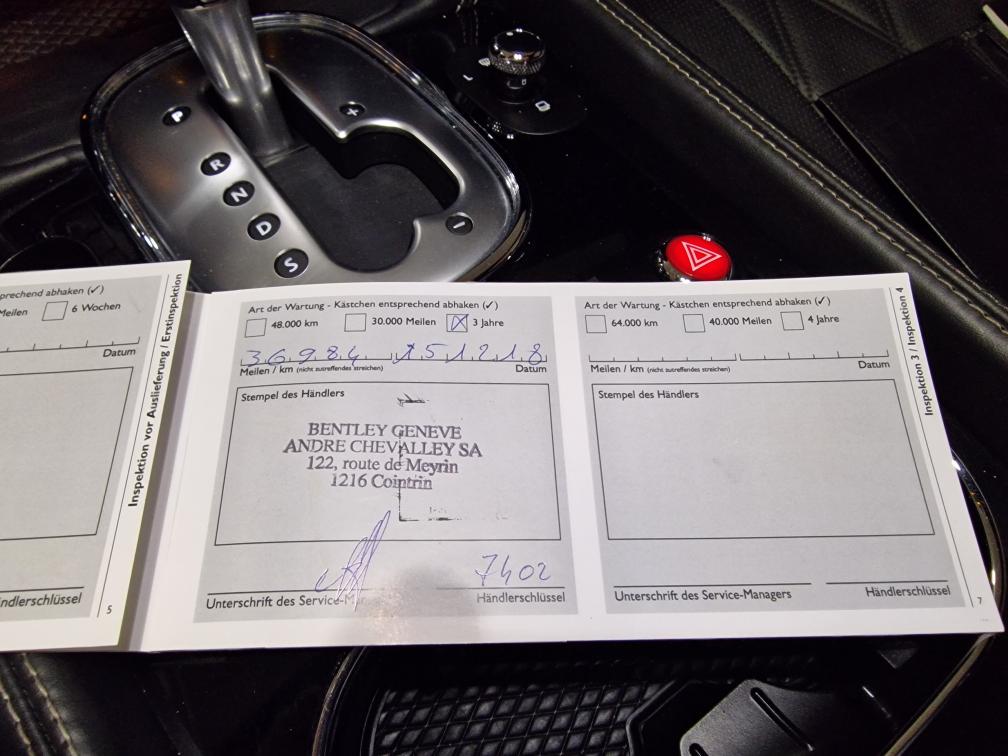 P
R
N
D
S
+
−
prechend abhaken (✓)
Meilen 6 Wochen
Datum
ndlerschlüssel
5
Inspektion vor Auslieferung / Erstinspektion
Art der Wartung - Kästchen entsprechend abhaken (✓)
48.000 km 30.000 Meilen 3 Jahre
36984 151218
Meilen / km (nicht zutreffendes streichen) Datum
Stempel des Händlers
BENTLEY GENEVE
ANDRE CHEVALLEY SA
122, route de Meyrin
1216 Cointrin
7402
Unterschrift des Service-Mar Händlerschlüssel
Art der Wartung - Kästchen entsprechend abhaken (✓)
64.000 km 40.000 Meilen 4 Jahre
Meilen / km (nicht zutreffendes streichen) Datum
Stempel des Händlers
Unterschrift des Service-Managers Händlerschlüssel
7
Inspektion 3 / Inspektion 4